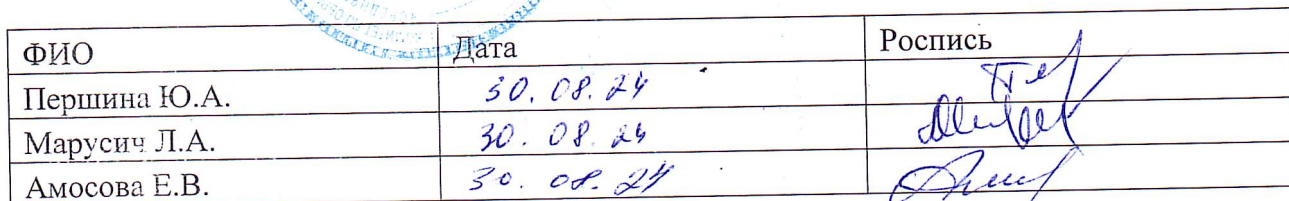 ФИО Дата Роспись
Першина Ю.А. 30.08.24
Марусич Л.А. 30.08.24
Амосова Е.В. 30.08.24